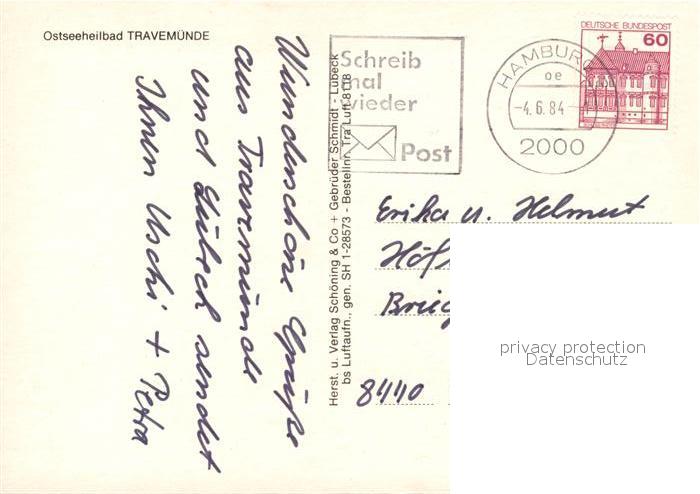 Ostseeheilbad TRAVEMÜNDE
Wunderschöne Grüße
aus Travemünde
und Lübeck sendet
Ihnen Uschi + Petra
Herst. u. Verlag Schöning & Co + Gebrüder Schmidt - Lübeck
bs Luftaufn., gen. SH 1-28573 - Bestellnr. Tra Luft 811B
Schreib
mal
wieder
Post
HAMBUR
oe
-4.6.84-
2000
DEUTSCHE BUNDESPOST
60
Erika u. Helmut
Höf
Brieg
8440
privacy protection
Datenschutz